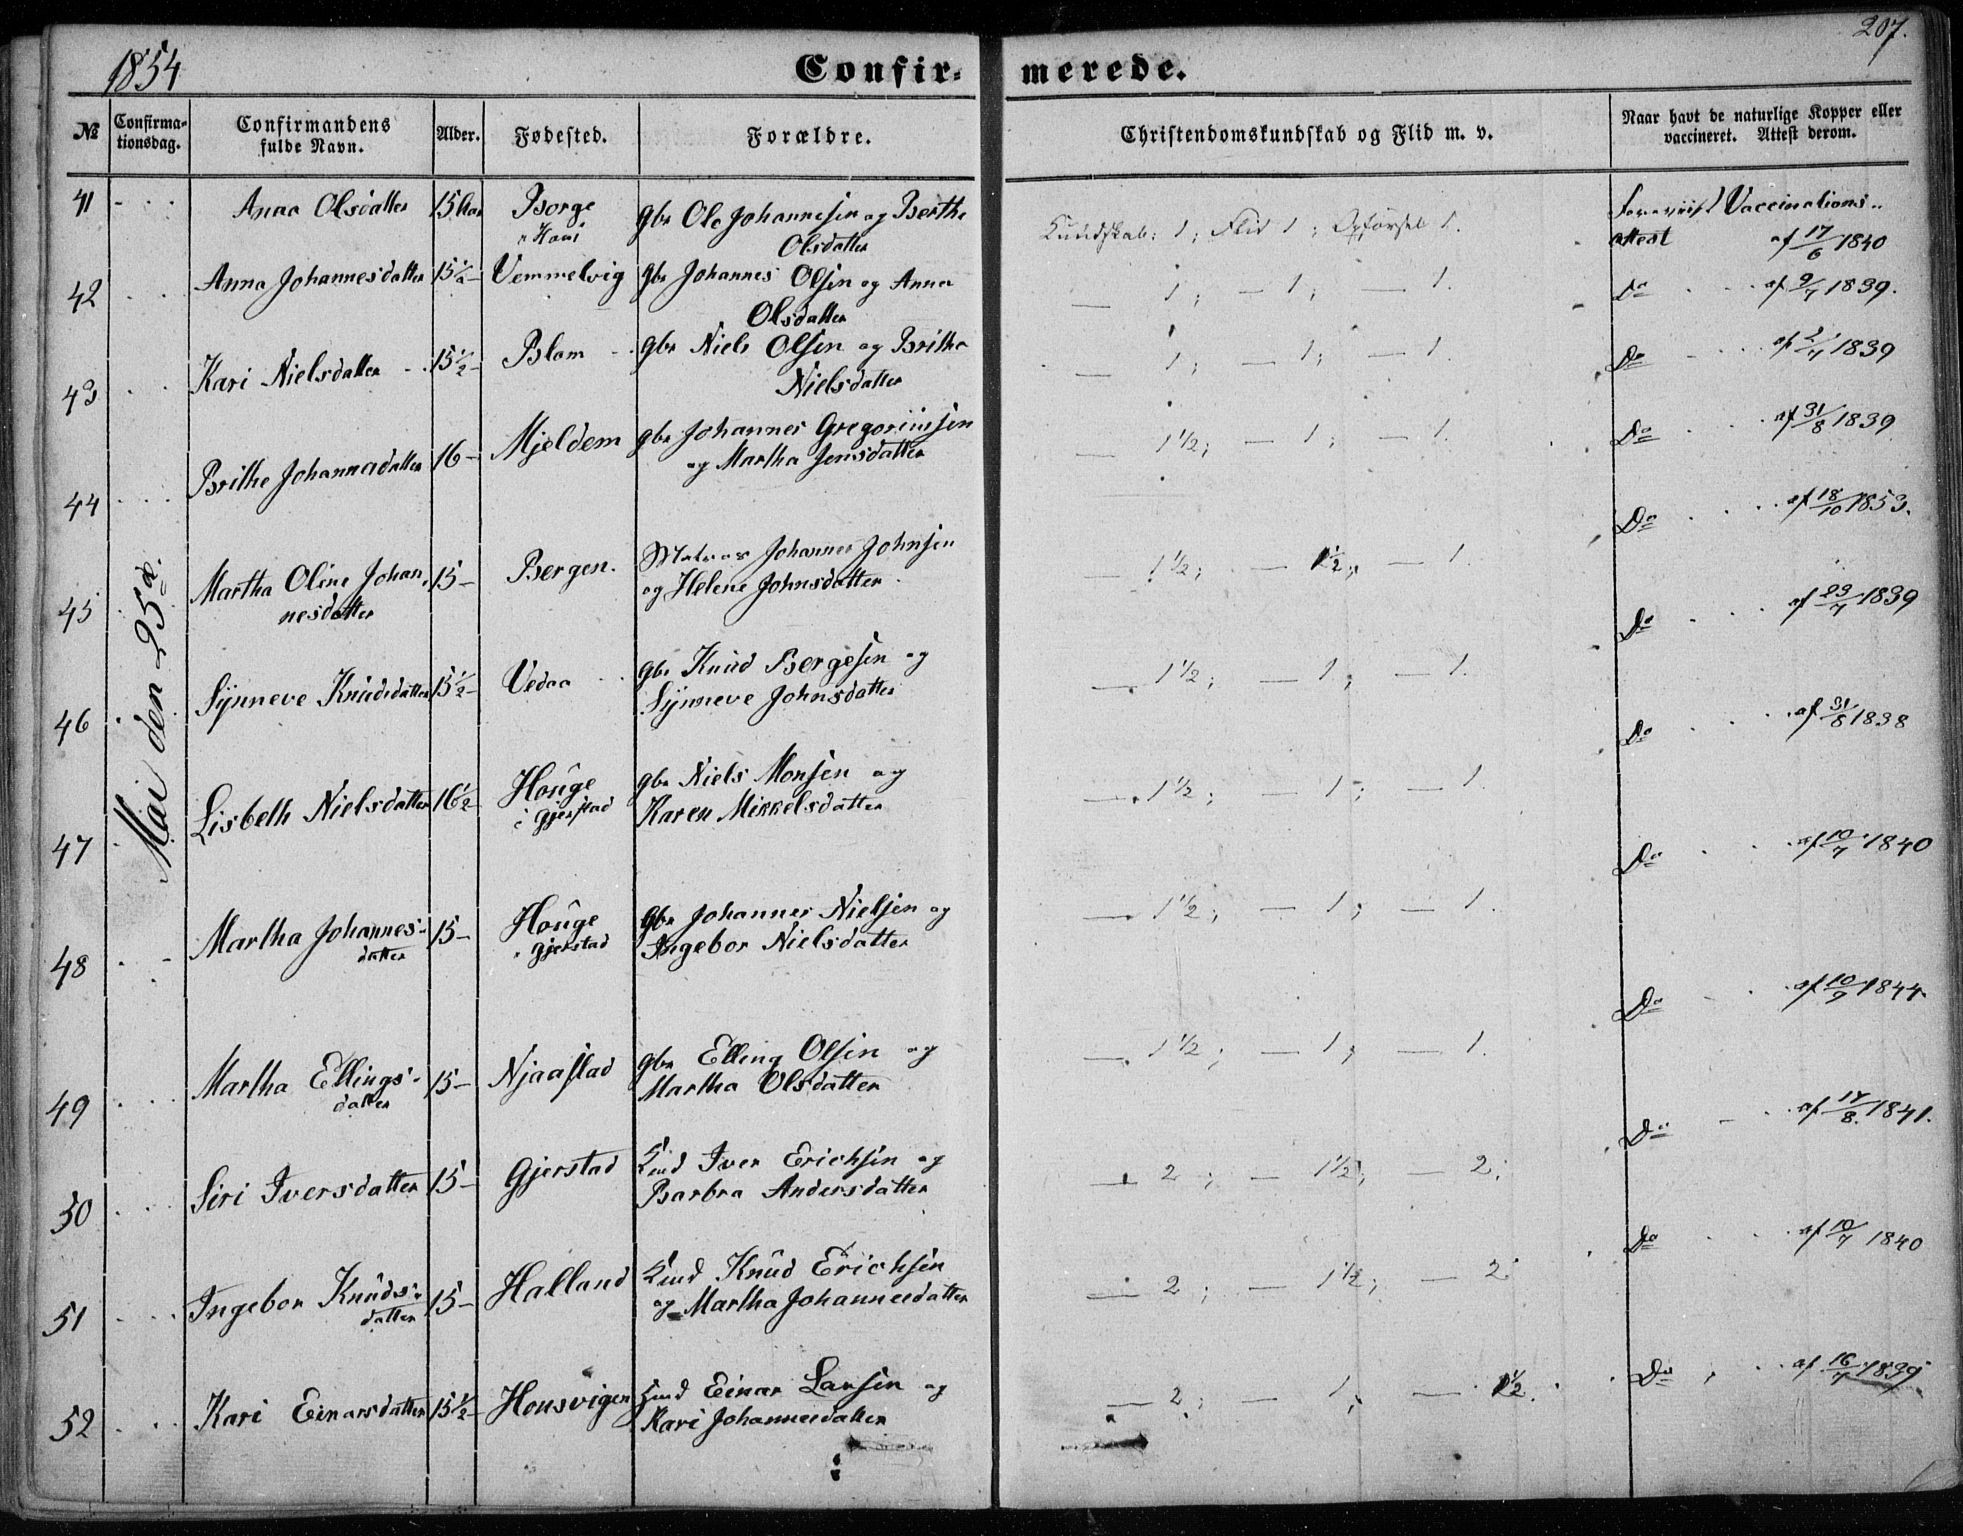 207.
1854
Confir- merede.
№ Confirma-tionsdag. Confirmandens fulde Navn. Alder. Fødested. Forældre. Christendomskundskab og Flid m. v. Naar havt de naturlige Kopper eller vaccineret. Attest derom.
Mai den 25de.
41 Anna Olsdatter 15 Aar Borge gbr Ole Johannesen og Berthe Olsdatter Kundskab: 1; Flid 1; Opførsel 1. Foreviist Vaccinations attest af 17/6 1840
42 Anna Johannesdatter 15½ - Vemmelvig gbr Johannes Olsen og Anna Olsdatter — 1; — 1; — 1. Do af 9/7 1839.
43 Kari Nielsdatter 15½ - Blom gbr Niels Olsen og Brithe Nielsdatter — 1; — 1; — 1. Do af 1839
44 Brithe Johannesdatter 16 - Mjeldem gbr Johannes Gregoriusen og Martha Jensdatter — 1½; — 1; — 1. Do af 31/8 1839
45 Martha Oline Johannesdatter 15 - Bergen. Matros Johannes Johnsen og Helene Johnsdatter — 1½; — 1½; — 1. Do af 18/10 1853.
46 Synneve Knudsdatter 15½ - Vedaa gbr Knud Bergesen og Synneve Johnsdatter — 1½; — 1; — 1. Do af 23/7 1839
47 Lisbeth Nielsdatter 16½ - Houge i Gjerstad gbr Niels Monsen og Karen Mikkelsdatter — 1½; — 1; — 1. Do af 31/8 1838
48 Martha Johannesdatter 15 - Houge Gjerstad gbr Johannes Nielsen og Ingebor Nielsdatter — 1½; — 1; — 1. Do af 10/7 1840
49 Martha Ellingsdatter 15 - Njaastad gbr Elling Olsen og Martha Olsdatter — 1½; — 1; — 1. Do af 10/9 1844
50 Siri Iversdatter 15 - Gjerstad Iver Erichsen og Barbra Andersdatter — 2; — 1½; — 2; Do af 17/8. 1841.
51 Ingebor Knudsdatter 15 - Halland Knud Erichsen og Martha Johannesdatter — 2; — 1½; — 2 Do af 10/7 1840
52 Kari Einarsdatter 15½ - Housvigen Einar Larsen og Kari Johannesdatter — 2; — 1; — 1½. Do af 16/7 1839